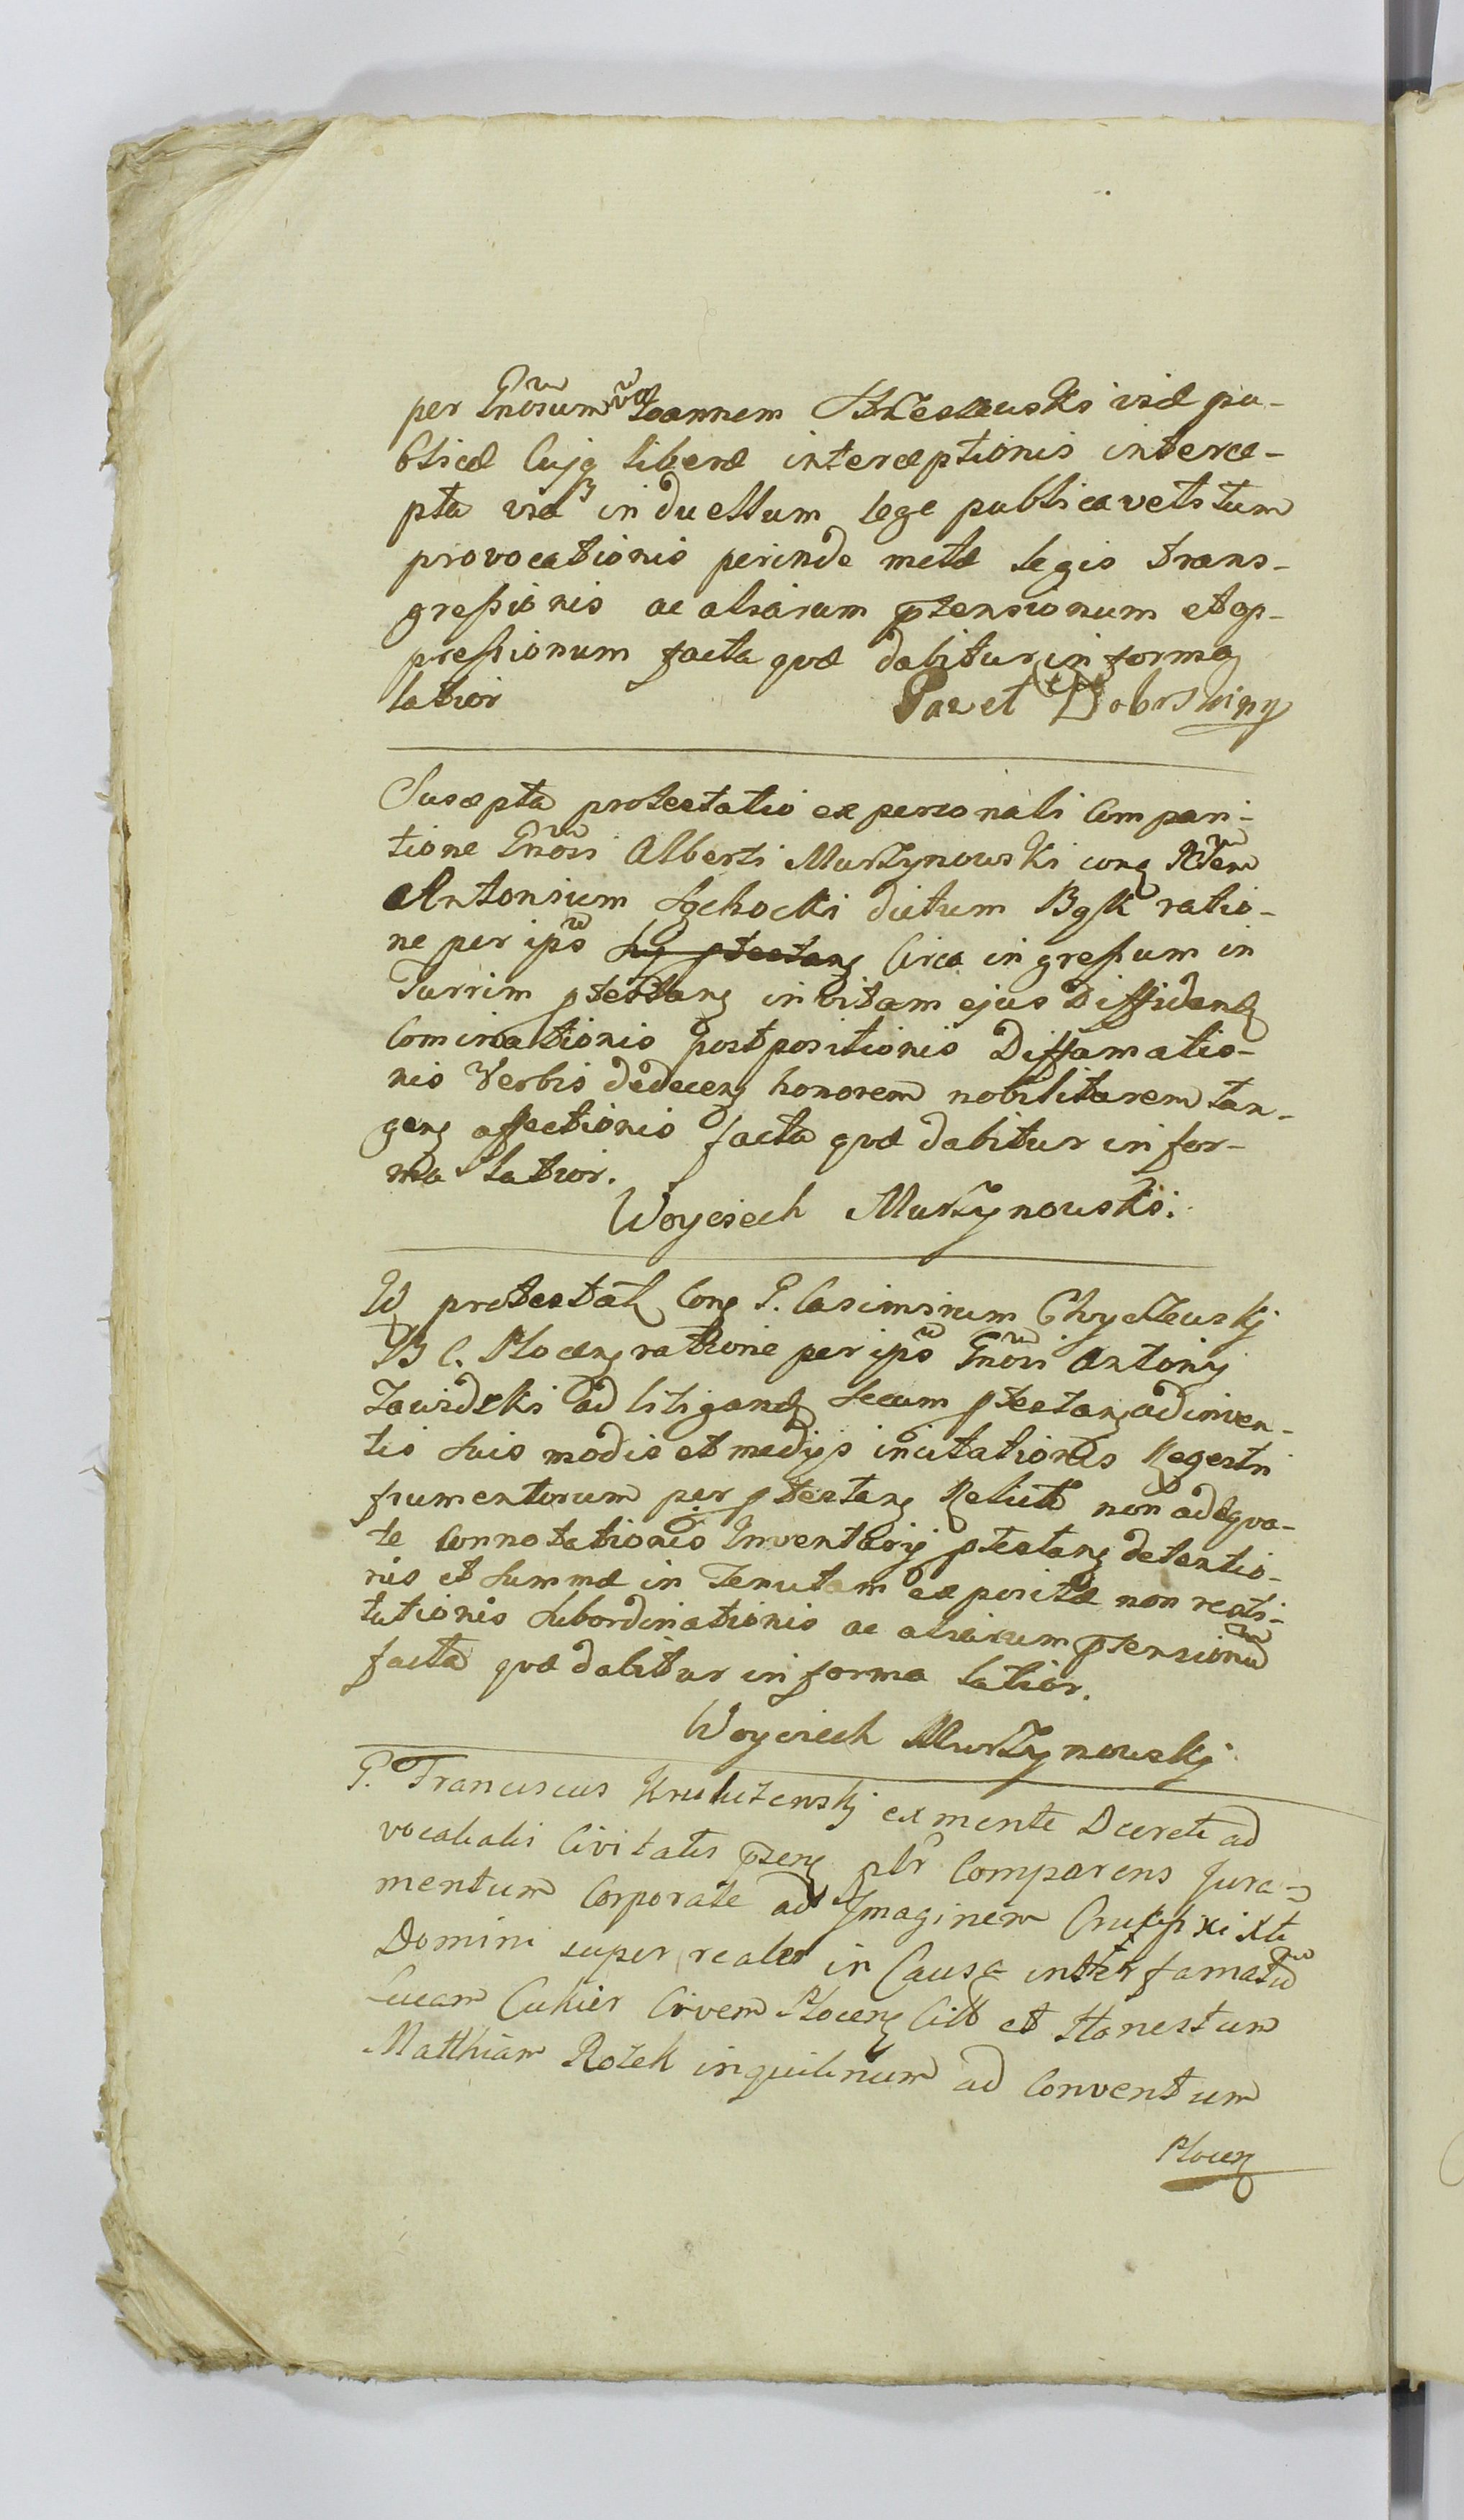 per Gnosum Joannem viæ pu-
blicæ cujq liberæ interceptionis interce-
pta viæ in duellum lege publica vetitum
provocationis perinde metæ legis trans-
gressionis ac aliarum ptensionum et op-
pressionum facta quæ dabitur in forma
latior Pawel
Suscepta protestatio ex personali Compari-
tione Gnosi Alberti Murzynowski conq
Antonium Lochocki dictum Bąk ratio-
ne per ipsũ Circa ingressum in
Turrim ptestanq in vitam ejus Diffidenq
Cominationis postpositionis Diffamatio-
nis Verbis dedecenq honorem nobilitarem tan-
genq affectionis facta quæ dabitur in for-
ma latior.
Woyciech Murzynowski.
protestatq Conq G. Casimirum
B C. Plocenq ratione per ipsũ Gnosi Antonij
Zawidzki ad litigandq secum ptestanq adinven-
tis suis modis et medijs incitationis Regestri
frumentorum per ptestanq Relicti non adæqua-
te Connotationis Inventarij ptestanq detentio-
nis et summæ in Tenutam expositæ non resti-
tutionis subordinationis ac aliarum ptensionũ
facta quæ dabitur in forma latior.
Woyciech Murzynowskj
G. Franciscus ex mente Decreti ad
vocatialis Civitatis psenq Comparens Jura-
mentum Corporale ad Imaginem Crucifixi Xti
Domini super realer in Causa inter famatũ
Lucam Cukier Civem Plocenq Citt et Honestum
Matthiam Rożek inquilinum ad Conventum
Plocenq